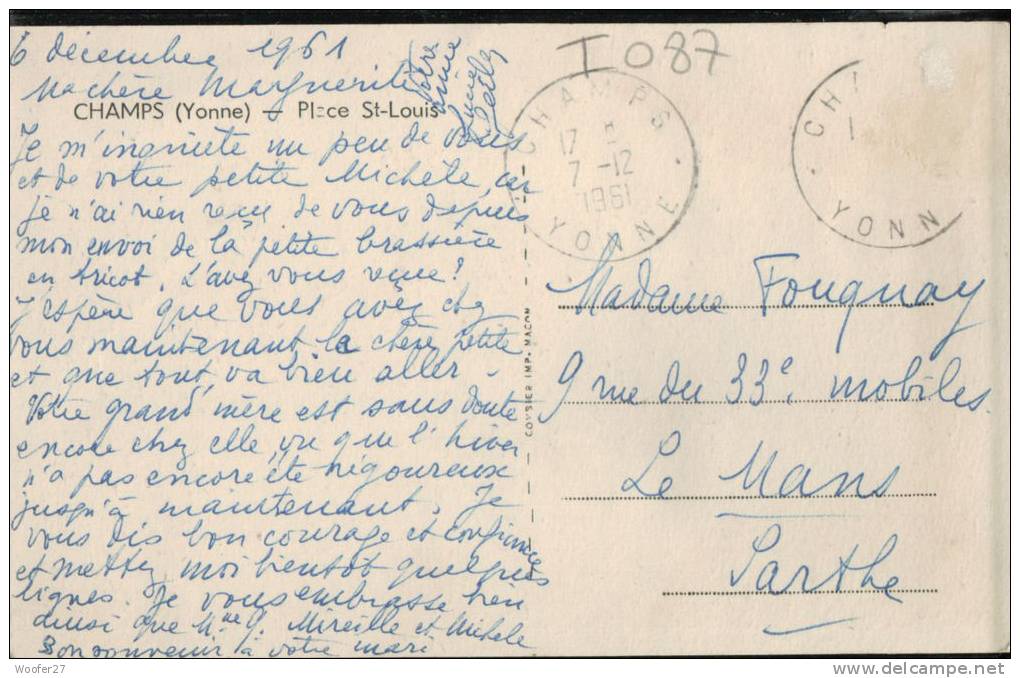 6 décembre 1961
Ma chère Marguerite
CHAMPS (Yonne) — Place St-Louis
Je m'inquiète un peu de vous
et de votre petite Michèle, car
je n'ai rien reçu de vous depuis
mon envoi de la petite brassière
en tricot. L'avez vous reçue ?
J'espère que vous avez chez
vous maintenant la chère petite
et que tout va bien aller.
Votre grand'mère est sans doute
encore chez elle, vu que l'hiver
n'a pas encore été rigoureux
jusqu'à maintenant. Je
vous dis bon courage et confiance
et mettez moi bientôt quelques
lignes. Je vous embrasse bien
ainsi que Mme G. Mireille et Michèle
Bon souvenir à votre mari
Votre
amie
COYSIER IMP. MACON
I 087
CHAMPS
17
7 -12
1961
YONNE
CH
1
YONN
Madame Fouquay
9 rue du 33e mobiles.
Le Mans
Sarthe
Woofer27
www.delcampe.net